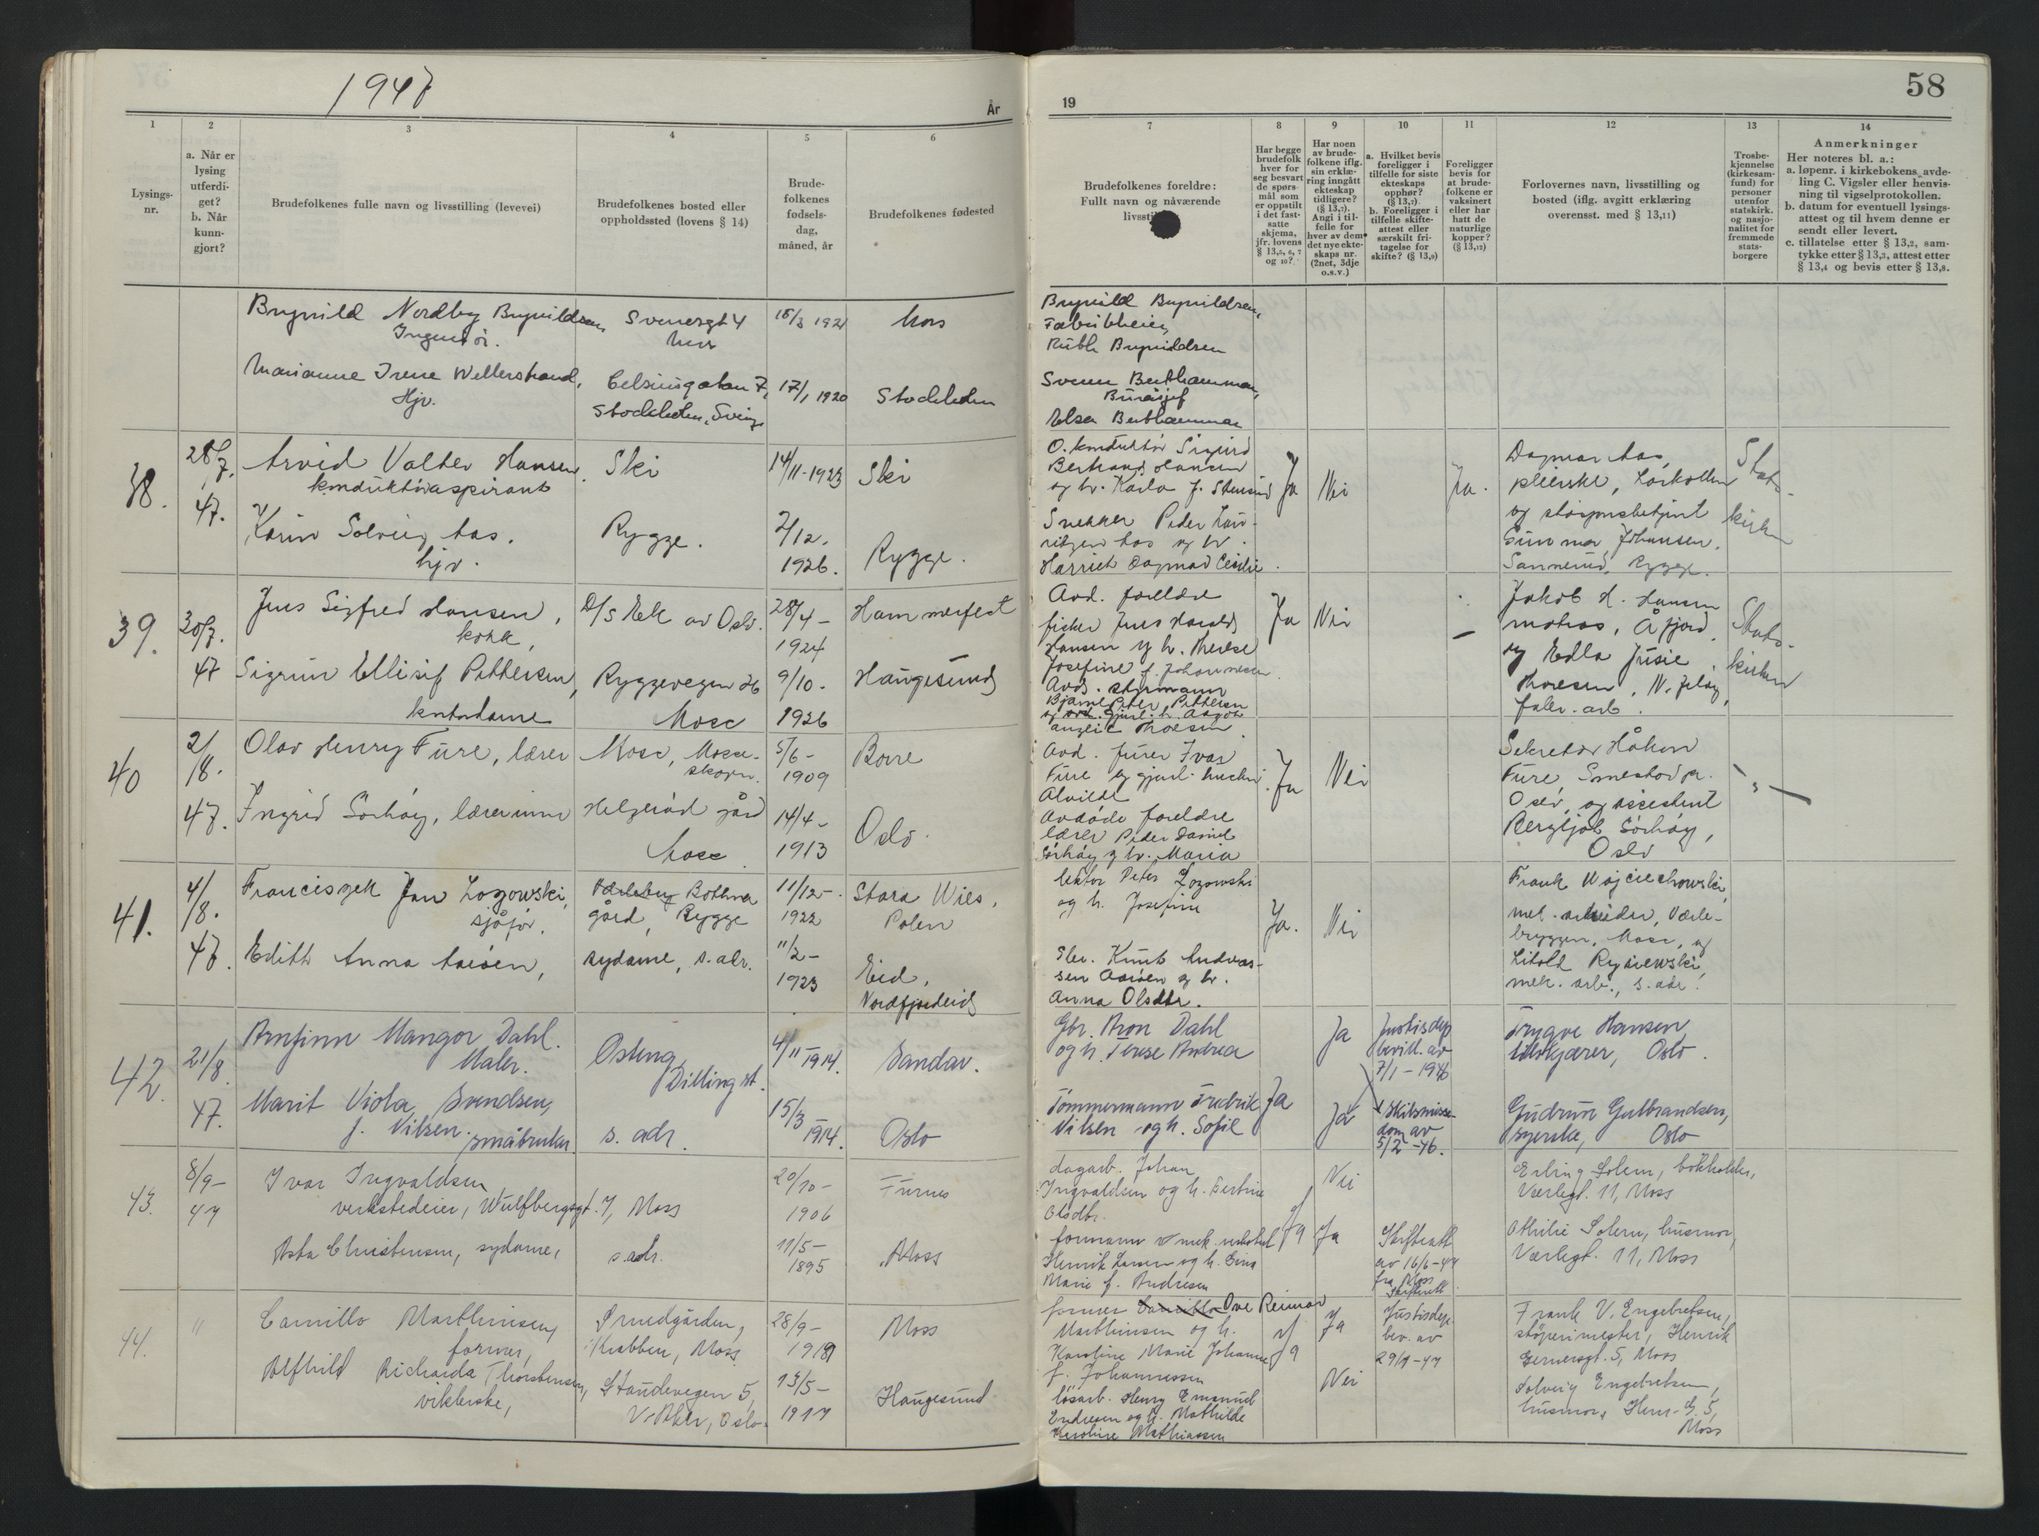 1947
År
1
2
3
4
5
6
Lysings-
nr.
a. Når er
lysing
utferdi-
get?
b. Når
kunn-
gjort?
Brudefolkenes fulle navn og livsstilling (levevei)
Brudefolkenes bosted eller
oppholdssted (lovens § 14)
Brude-
folkenes
fødsels-
dag,
måned, år
Brudefolkenes fødested
Brynild Nordby Brynildsen
Ingeniør.
Svenergt 4
Moss
15/3 1921
Moss
Marianne Irene Wetterstrand,
Hjv.
Celsiusgatan 7,
Stockholm, Sverige
17/1 1920
Stockholm
38.
28/7.
47.
Arvid Valter Hansen
konduktøraspirant
Ski
14/11-1923
Ski
Karin Solveig Aas.
hjv.
Rygge.
2/12.
1926.
Rygge.
39.
30/7.
47
Jens Sigfred Hansen,
kokk,
D/S Eek av Oslo.
28/4-
1924
Hammerfest
Sigrun Ellisif Pettersen,
kontordame
Ryggevegen 26
Moss
9/10.
1926
Haugesund
40
2/8.
47.
Olav Henry Fure, lærer
Moss, Mosse-
skogen.
5/6-
1909
Borre
Ingrid Sørhøy, lærerinne
Helgerød gård
Moss.
14/4-
1913
Oslo.
41.
4/8.
47.
Franciszek Jan Lozowski,
sjåfør.
Bothner
gård, Rygge
11/12-
1922
Stara Wies,
Polen
Edith Anna Aasen,
sydame, s. adr.
11/2-
1923
Eid,
Nordfjordeid
42.
21/8
47.
Arnfinn Mangor Dahl.
Maler.
Osteng,
Dilling st.
4/11-1914.
Sandar.
Marit Viola Svendsen,
f. Nilsen. småbruker
s. adr.
15/3
1914.
Oslo
43.
8/9-
47
Ivar Ingvaldsen
verkstedeier, Wulfbergsgt. 7, Moss
20/10-
1906
Furnes
Asta Christensen, sydame,
s. adr.
11/5-
1895
Moss
44.
"
Camillo Marthinsen,
former,
Smedgården,
Krabben, Moss
28/9-
1919
Moss
Alfhild Richarda Thorstensen,
viklerske,
Staudevegen 5,
V. Aker, Oslo.
13/5-
1917
Haugesund
19
58
7
8
9
10
11
12
13
14
Brudefolkenes foreldre:
Fullt navn og nåværende
Har begge
brudefolk
hver for
seg besvart
de spørs-
mål som
er oppstilt
i det fast-
satte
skjema,
jfr. lovens
§ 13,5, 6, 7
og 10?
Har noen
av brude-
folkene iflg.
sin erklæ-
ring inngått
ekteskap
tidligere?
(§ 13,7).
Angi i til-
felle for
hver av dem
det nye ekte-
skaps nr.
(2net, 3dje
o.s.v.)
a. Hvilket bevis
foreligger i
tilfelle for siste
ekteskaps
opphør?
(§ 13,7).
b. Foreligger i
tilfelle skifte-
attest eller
særskilt fri-
tagelse for
skifte? (§ 13,9)
Foreligger
bevis for
at brude-
folkene er
vaksinert
eller har
hatt de
naturlige
kopper?
(§ 13,12)
Forlovernes navn, livsstilling og
bosted (iflg. avgitt erklæring
overensst. med § 13,11)
Trosbe-
kjennelse
(kirkesam-
fund) for
personer
utenfor
statskirk.
og nasjo-
nalitet for
fremmede
stats-
borgere
Anmerkninger
Her noteres bl. a.:
a. løpenr. i kirkebokens avde-
ling C. Vigsler eller henvis-
ning til vigselprotokollen.
b. datum for eventuell lysings-
attest og til hvem denne er
sendt eller levert.
c. tillatelse etter § 13,2, sam-
tykke etter § 13,3, attest etter
§ 13,4 og bevis etter § 13,8.
Brynild Brynildsen,
Fabrikkeier,
Ruth Brynildsen
Svenn Berthammar,
Byråsjef
Elsa Berthammar
O. konduktør Sigurd
Bertrand Hansen
og h. Karla f. Stensrud
Ja
Nei
Ja.
Dagmar Aas,
pleierske, Larkollen
og stasjonsbetjent
Gunnar Johansen,
Sannerud, Rygge.
Stats-
kirken
Snekker Peder Lau-
ritzen Aas og h.
Harriet Dagmar Cecilie
Avd. foreldre
fisker Jens Harald
Hansen og h. Therese
Josefine f. Johannesen
Ja
Nei
Jakob H. Hansen
Åfjord,
og Edla Jusie
Thoresen, N. Jeløy,
fabr. arb.
Stats-
kirken
Avd. styrmann
Bjarne Peter Pettersen
Thoresen
Avd. furer Ivar
Fure og gjenl. hustru
Alvilde
Ja
Nei
Sekretær Håkon
Fure Smestad pr.
Oslo, og assistent
Bergljot Sørhøy,
Oslo
Avdøde foreldre
lærer Peder Daniel
Sørhøy og h. Maria
lektor Peter Lozowski
og h. Josefine
Ja.
Nei
Frank Wojciechowski,
mek. arbeider, Værle-
bryggen, Moss, og
Litold Rysiewski,
mek. arb., s. adr.
Knut Andreas-
sen Aasen og h.
Anna Olsdtr.
Gbr. Aron Dahl
og h. Terese Andrea
Ja
Justisdep
bevill. av
7/1-1946
Trygve Hansen,
Oslo.
Tømmermann Fredrik
Nilsen og h. Sofie
Ja
Ja
Skilsmisse-
dom av
5/2-46.
Gudrun Gulbrandsen,
syerske, Oslo
dagarb. Johan
Ingvaldsen og h. Bertine
Olsdtr.
Nei
Erling Solem, bokholder,
Værlegt. 11, Moss
formann v mek. verksted
Henrik Larsen og h. Gina
Marie f. Andresen
Ja
Ja
Skifteatt
av 16/6-47
fra Moss
Skifterett
Othilie Solem, husmor,
Værlegt. 11, Moss
former Ove Reimar
Marthinsen og h.
Karoline Marie Johanne
f. Johannessen
Ja
Ja
Justisdep.
bev. av
29/7-47
Frank V. Engebretsen,
støperimester, Henrik
Gernersgt. 5, Moss
løsarb. Henry Emanuel
Endresen og h. Mathilde
Karoline Mathiassen
Nei
Solveig Engebretsen,
husmor, Henr. G. 5,
Moss